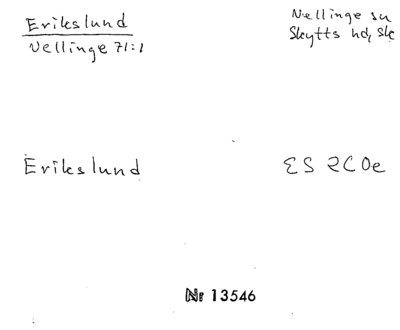 Erikslund
Vellinge 71:1
Vellinge sn
Skytts hd, Sk
Erikslund
ES 2C 0e
Nr 13546